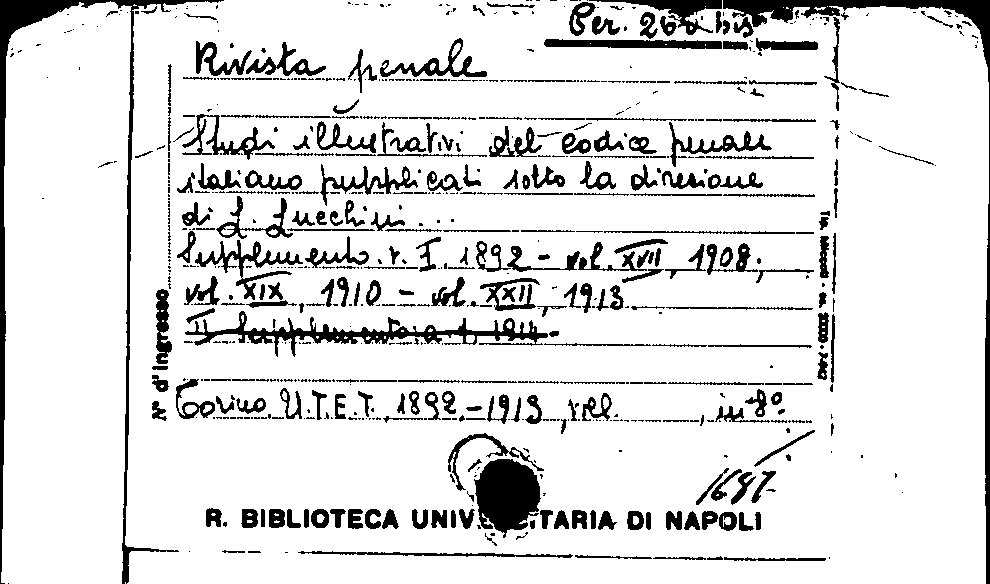 Per. 260 bis
Rivista penale
Studi illustrativi del codice penale
italiano pubblicati sotto la direzione
di L. Lucchini ...
Supplemento. v. I, 1892 - vol. XVII, 1908;
vol. XIX, 1910 - vol. XXII, 1913.
II Supplemento: a 1, 1914-
Torino, U.T.E.T., 1892-1913, voll. , in 8º.
1687
N° d'ingresso
R. BIBLIOTECA UNIV TARIA DI NAPOLI